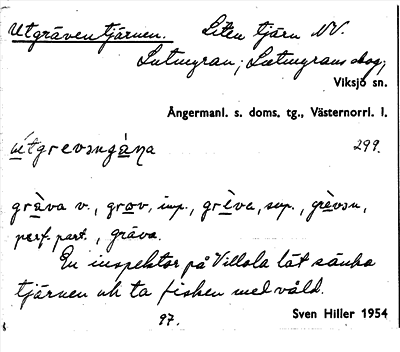 Utgräventjärnen. Liten tjärn NV.
Lutmyran; Lutmyrans skog;
Viksjö sn.
Ångermanl. s. doms. tg., Västernorrl. l.
299.
grava v., grov, imp., grèva, sup., grèvsn,
perf. part., gräva.
En inspektor på Villola lät sänka
tjärnen och ta fisken med våld.
97. Sven Hiller 1954